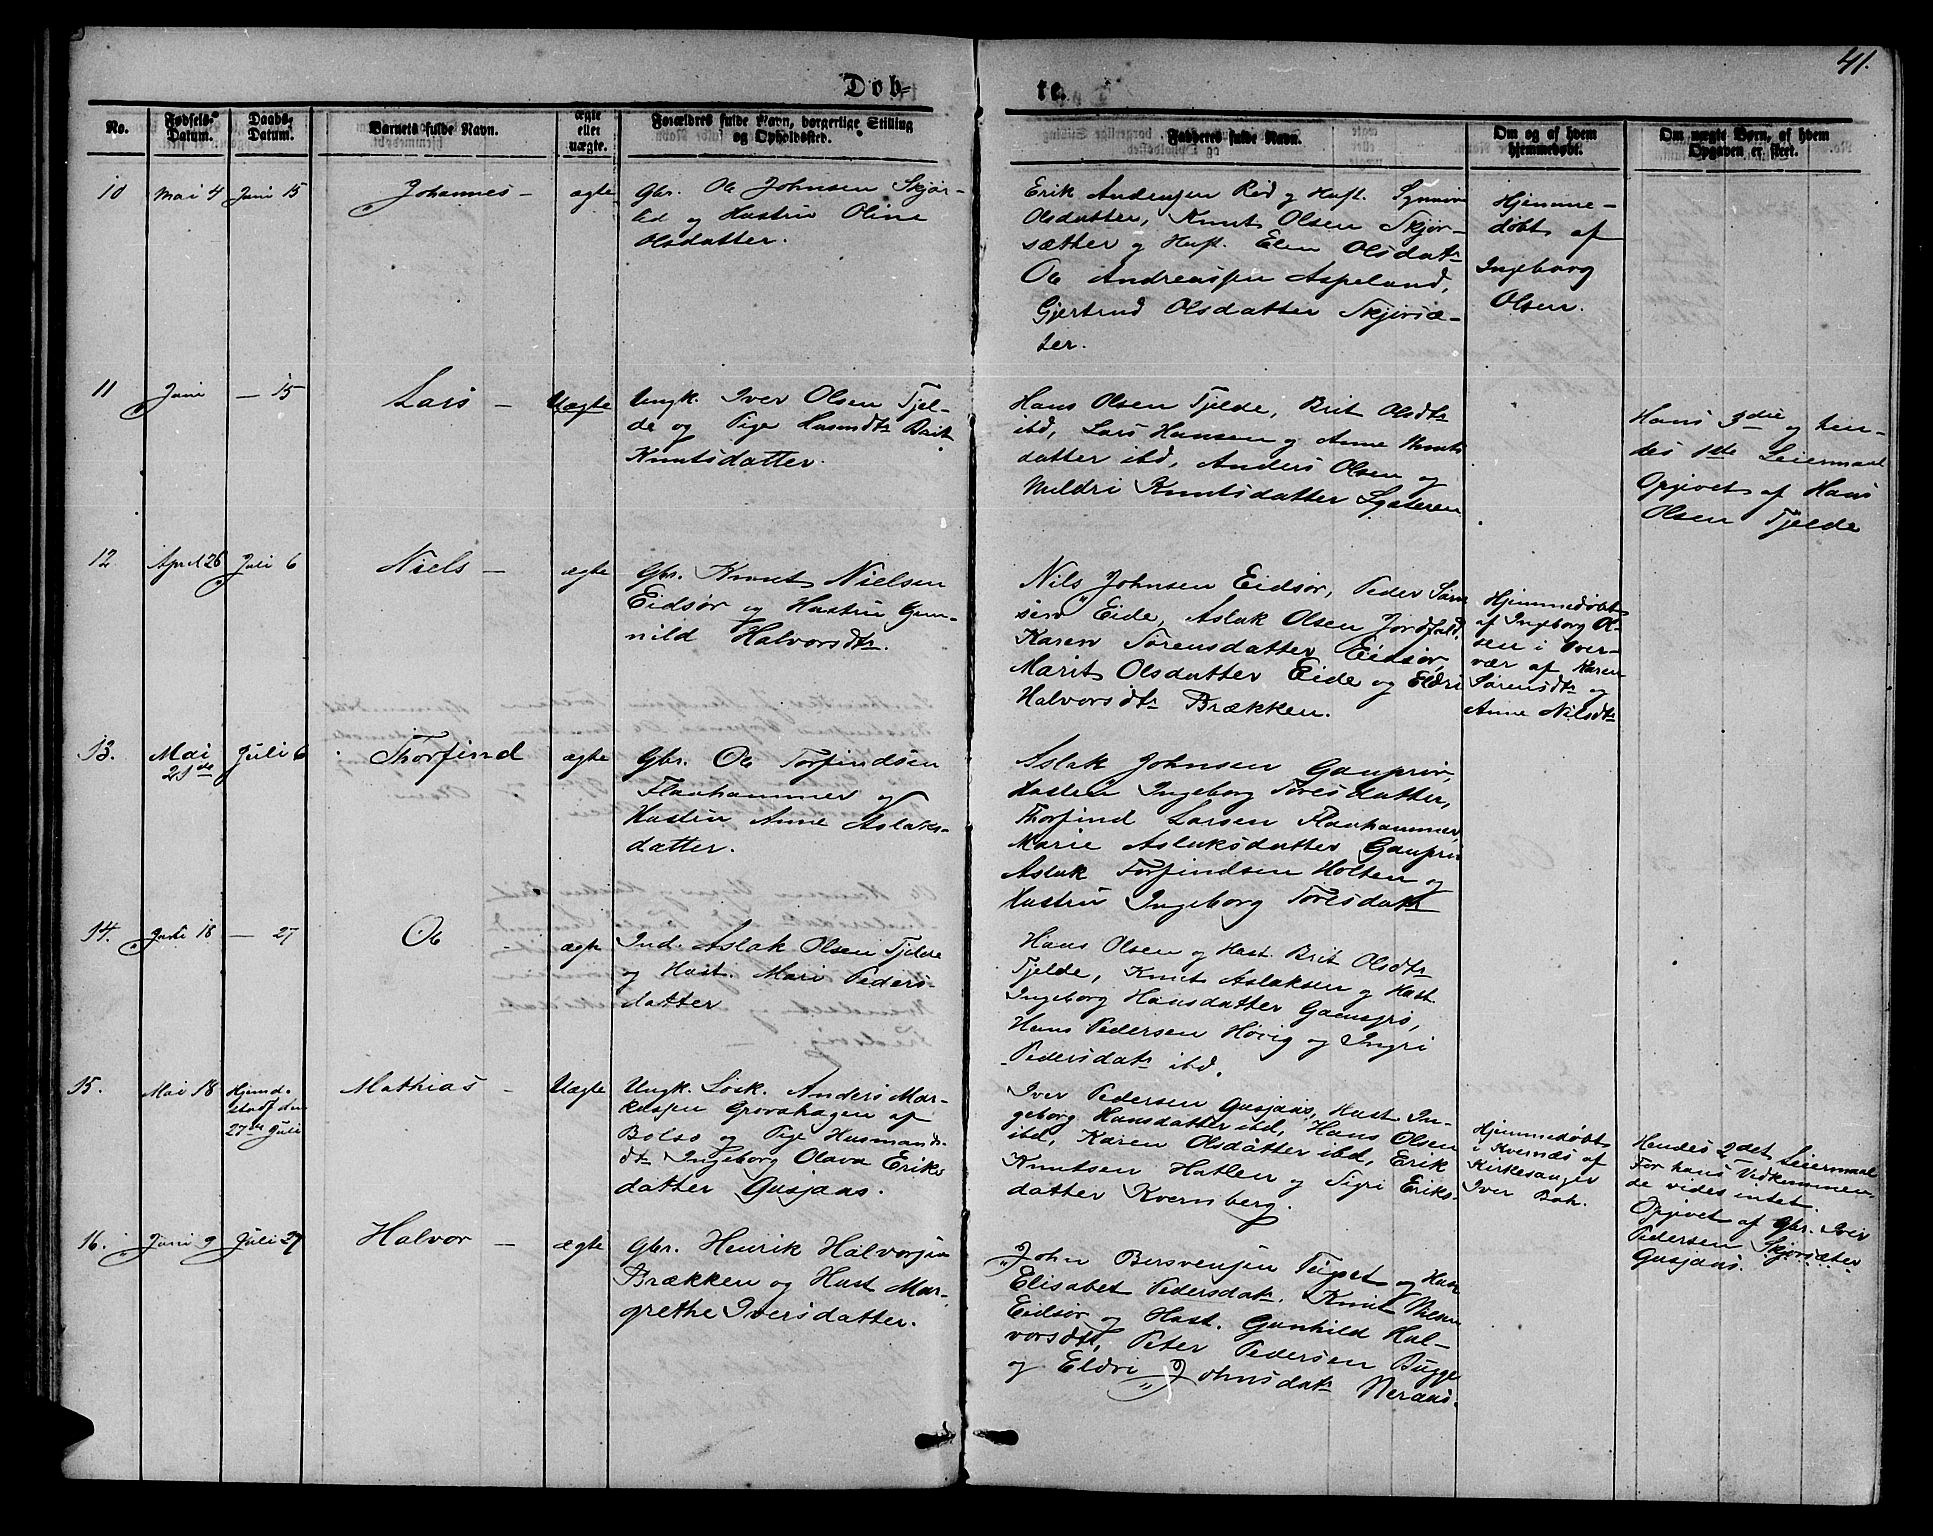 41.
Døb-
te.
No.
Fødsels-
Datum.
Daabs-
Datum.
Barnets fulde Navn.
ægte
eller
uægte.
Forældres fulde Navn, borgerlige Stilling
og Opholdssted.
Fadderes fulde Navn.
Om og af hvem
hjemmedøbt.
Om uægte Børn, af hvem
Opgaven er skeet.
10 Mai 4 Juni 15 Johannes - ægte
Gbr. Ole Johnsen Skjør-
og Hustru Oline
Olsdatter.
Erik Andersen Rød og Hust. Synnøve
Olsdatter, Knut Olsen Skjør-
sæther og Hust. Elen Olsdatr
Ole Andreassen Aspelund,
Gjertrud Olsdatter Skjørsæ-
ter.
Hjemme-
døbt af
Ingeborg
Olsen.
11 Juni - 15 Lars - Uægte
Ungk. Iver Olsen Tjel-
de og Pige Husmdtr Brit
Knutsdatter.
Hans Olsen Tjelde, Brit Olsdtr
ibd, Lars Hansen og Anne Knuts
datter ibd, Anders Olsen og
Knutsdatter
Hans 3die og hen-
des 1ste Leiermaal
Opgivet af Hans
Olsen Tjelde
12 April 26 Juli 6 Niels - ægte
Gbr. Knut Nielsen
Eidsør og Hustru Gun-
nild Halvorsdtr.
Nils Johnsen Eidsør, Peder Søren
sen Eide, Aslak Olsen Jordfald,
Karen Sørensdatter Eidsør,
Marit Olsdatter Eide og Eldri
Halvorsdtr Brækken.
Hjemmedøbt
af Ingeborg Ol-
sen i Over-
vær af Karen
Sørensdtr og
Anne Nilsdtr
13. Mai
21de Juli 6 Thorfind ægte
Gbr. Ole Torfindsen
Flaahammer og
Hustru Anne Aslaks-
datter.
Aslak Johnsen Gauprør,
Hustru Ingeborg Toresdatter,
Thorfind Larsen Flaahammer,
Marie Aslaksdatter Gauprø
Aslak Torfindsen Holten og
Hustru Ingeborg Toresdatr
14. Juli 18 - 27 Ole ægte
Ind. Aslak Olsen Tjelde
og Hust. Mari Peders-
datter
Hans Olsen og Hust. Brit Olsdtr
Tjelde, Knut Aslaksen og Hust
Ingeborg Hansdatter
Hans Pedersen Høvig og Ingri
Pedersdatr ibd.
15. Mai 18 Hjemde-
den
27de Juli Mathias - Uægte
Ungk. Løsk. Anders Mar-
kussen Grovahagen af
Bolsø og Pige Husmands-
dtr Ingeborg Olava Eriks
datter Gusjaas.
Iver Pedersen Gusjaas, Hust In-
geborg Hansdatter ibd, Hans Olsen
ibd, Karen Olsdatter ibd, Erik
Knutsen Hatlen og Sigri Eriks-
datter Kvernberg.
Hjemmedøbt
i Kvernæs af
Kirkesanger
Iver Boh.
Hendes 2det Leiermaal
For hans Vidkommen
de vides intet.
Opgivet af Gbr. Iver
Pedersen Skjørsæter
Gusjaas.
16. Juni 9 Juli 27 Halvor - ægte
Gbr. Henrik Halvorsen
Brækken og Hust Mar-
grethe Iversdatter.
John Bersvensen og Hust
Elisabet Pedersdatr. Knut
Eidsør og Hust. Gunhild Hal-
vorsdtr, Peter Pedersen Bugge
og Eldri Johnsdatr Neraas.